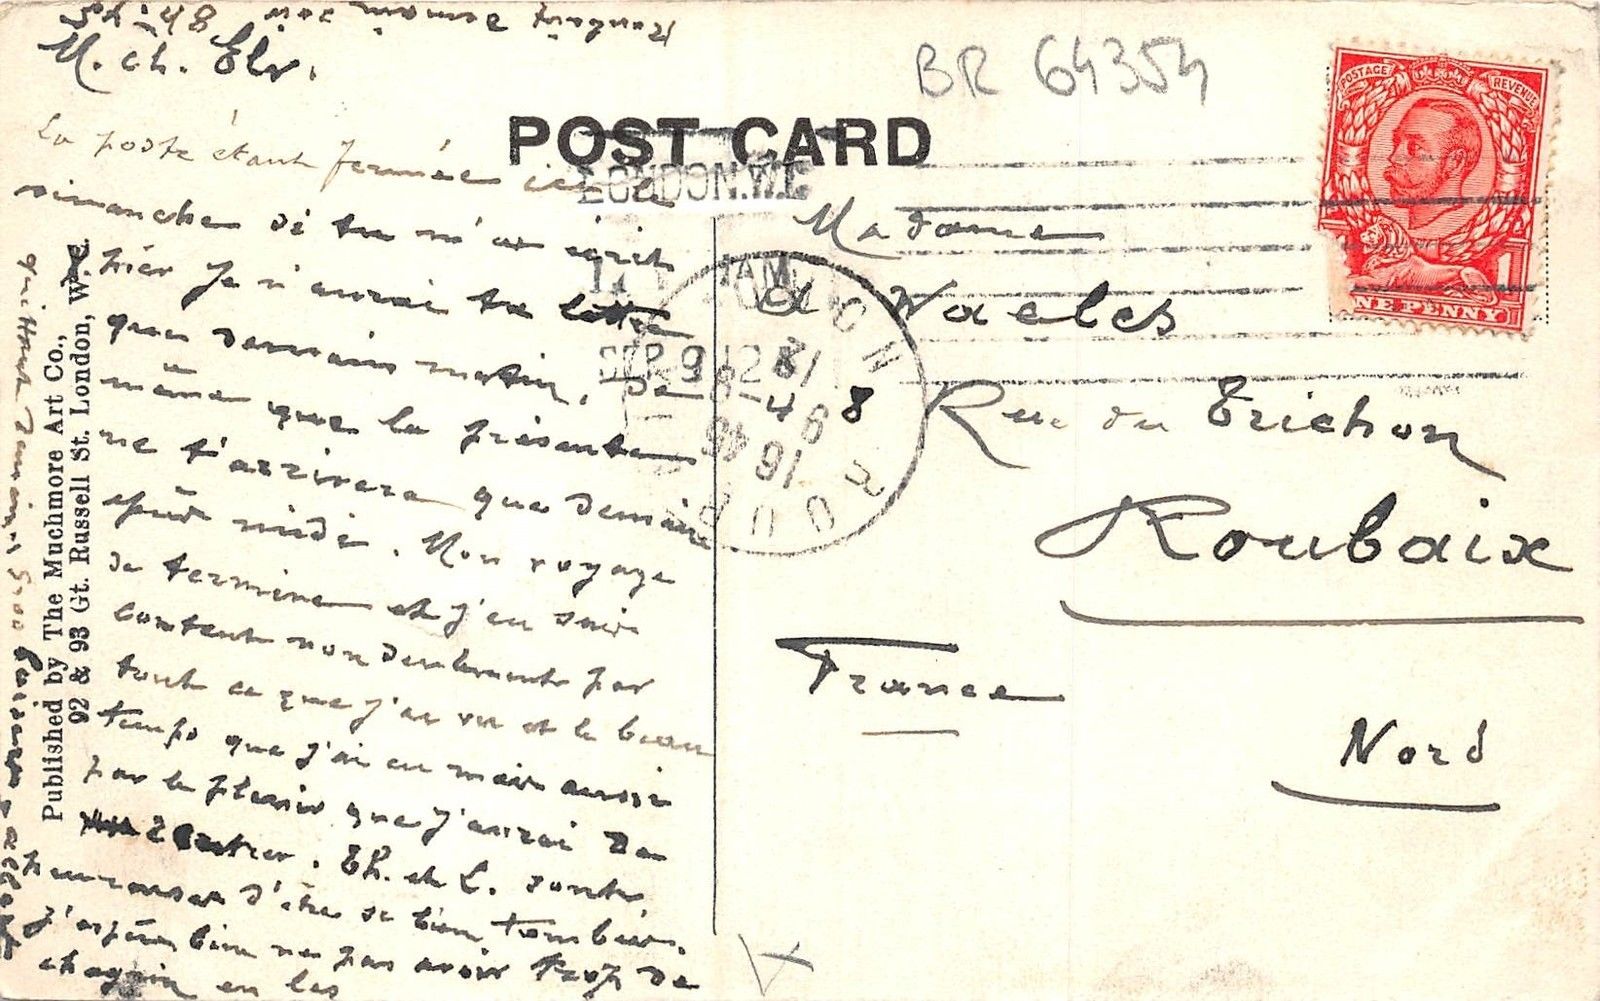 M. ch. Elv.
La poste étant fermée ici le
dimanche si tu m'as écrit
hier je n'aurai ta lettre
que demain matin, de
même que la présente
ne t'arrivera que demain
après midi. Mon voyage
se termine et j'en suis
content non seulement par
tout ce que j'ai vu et le beau
temps que j'ai eu mais aussi
par le plaisir que j'aurai de
rentrer. Th. et L. sont
heureuses d'être si bien tombées.
J'espère bien ne pas avoir trop de
chagrin en les
Published by The Muchmore Art Co.,
92 & 93 Gt. Russell St. London, W.C.
POST CARD
BR 64354
LONDON. W.C.
SEP 9 12
ROUBAIX
POSTAGE
REVENUE
ONE PENNY
1
Madame
d Waeles
8 Rue du Trichon
Roubaix
France
Nord